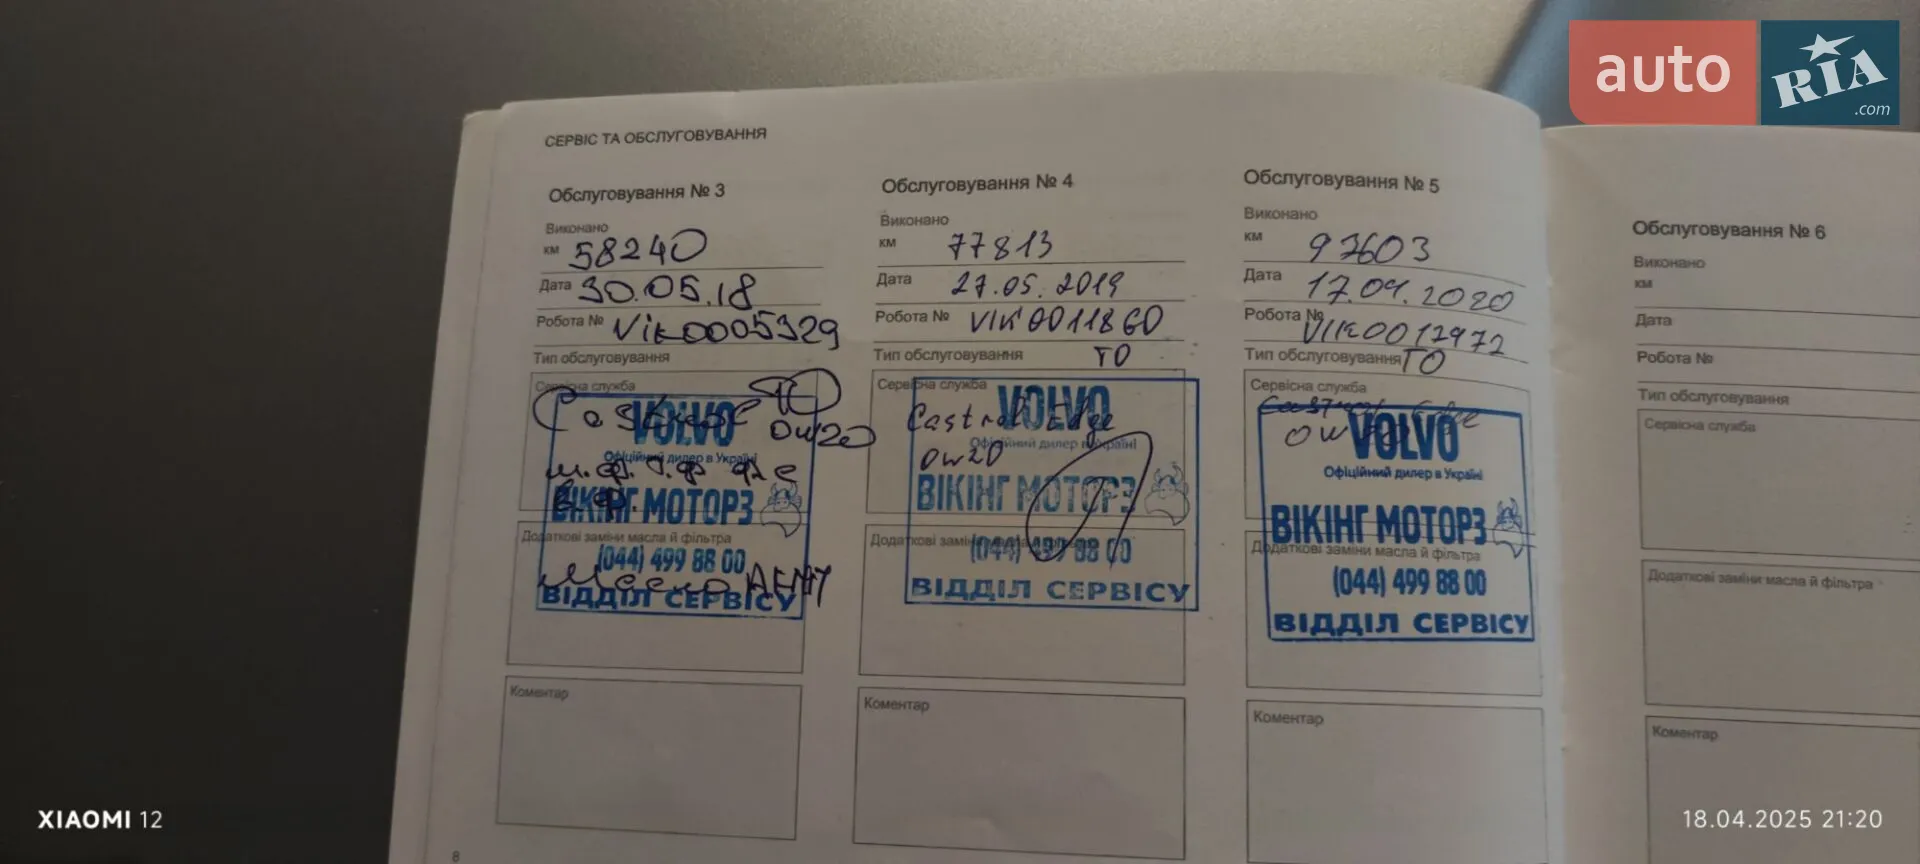 auto RIA.com
СЕРВІС ТА ОБСЛУГОВУВАННЯ
Обслуговування № 3
Виконано
км 58240
Дата 30.05.18
Робота № Vik0005329
Тип обслуговування
Сервісна служба
Castrol 0w20
VOLVO
Офіційний дилер в Україні
ВІКІНГ МОТОРЗ
Додаткові заміни масла й фільтра
(044) 499 88 00
Масло
ВІДДІЛ СЕРВІСУ
Коментар
8
Обслуговування № 4
Виконано
км 77813
Дата 27.05.2019
Робота № VIK0011860
Тип обслуговування ТО
Сервісна служба
VOLVO
Castrol Edge
Офіційний дилер в Україні
0w20
ВІКІНГ МОТОРЗ
Додаткові заміни масла й фільтра
(044) 499 88 00
ВІДДІЛ СЕРВІСУ
Коментар
Обслуговування № 5
Виконано
км 97603
Дата 17.04.2020
Робота №
Тип обслуговування ТО
Сервісна служба
Castrol Edge
VOLVO
Офіційний дилер в Україні
ВІКІНГ МОТОРЗ
Додаткові заміни масла й фільтра
(044) 499 88 00
ВІДДІЛ СЕРВІСУ
Коментар
Обслуговування № 6
Виконано
км
Дата
Робота №
Тип обслуговування
Сервісна служба
Додаткові заміни масла й фільтра
Коментар
XIAOMI 12
18.04.2025 21:20